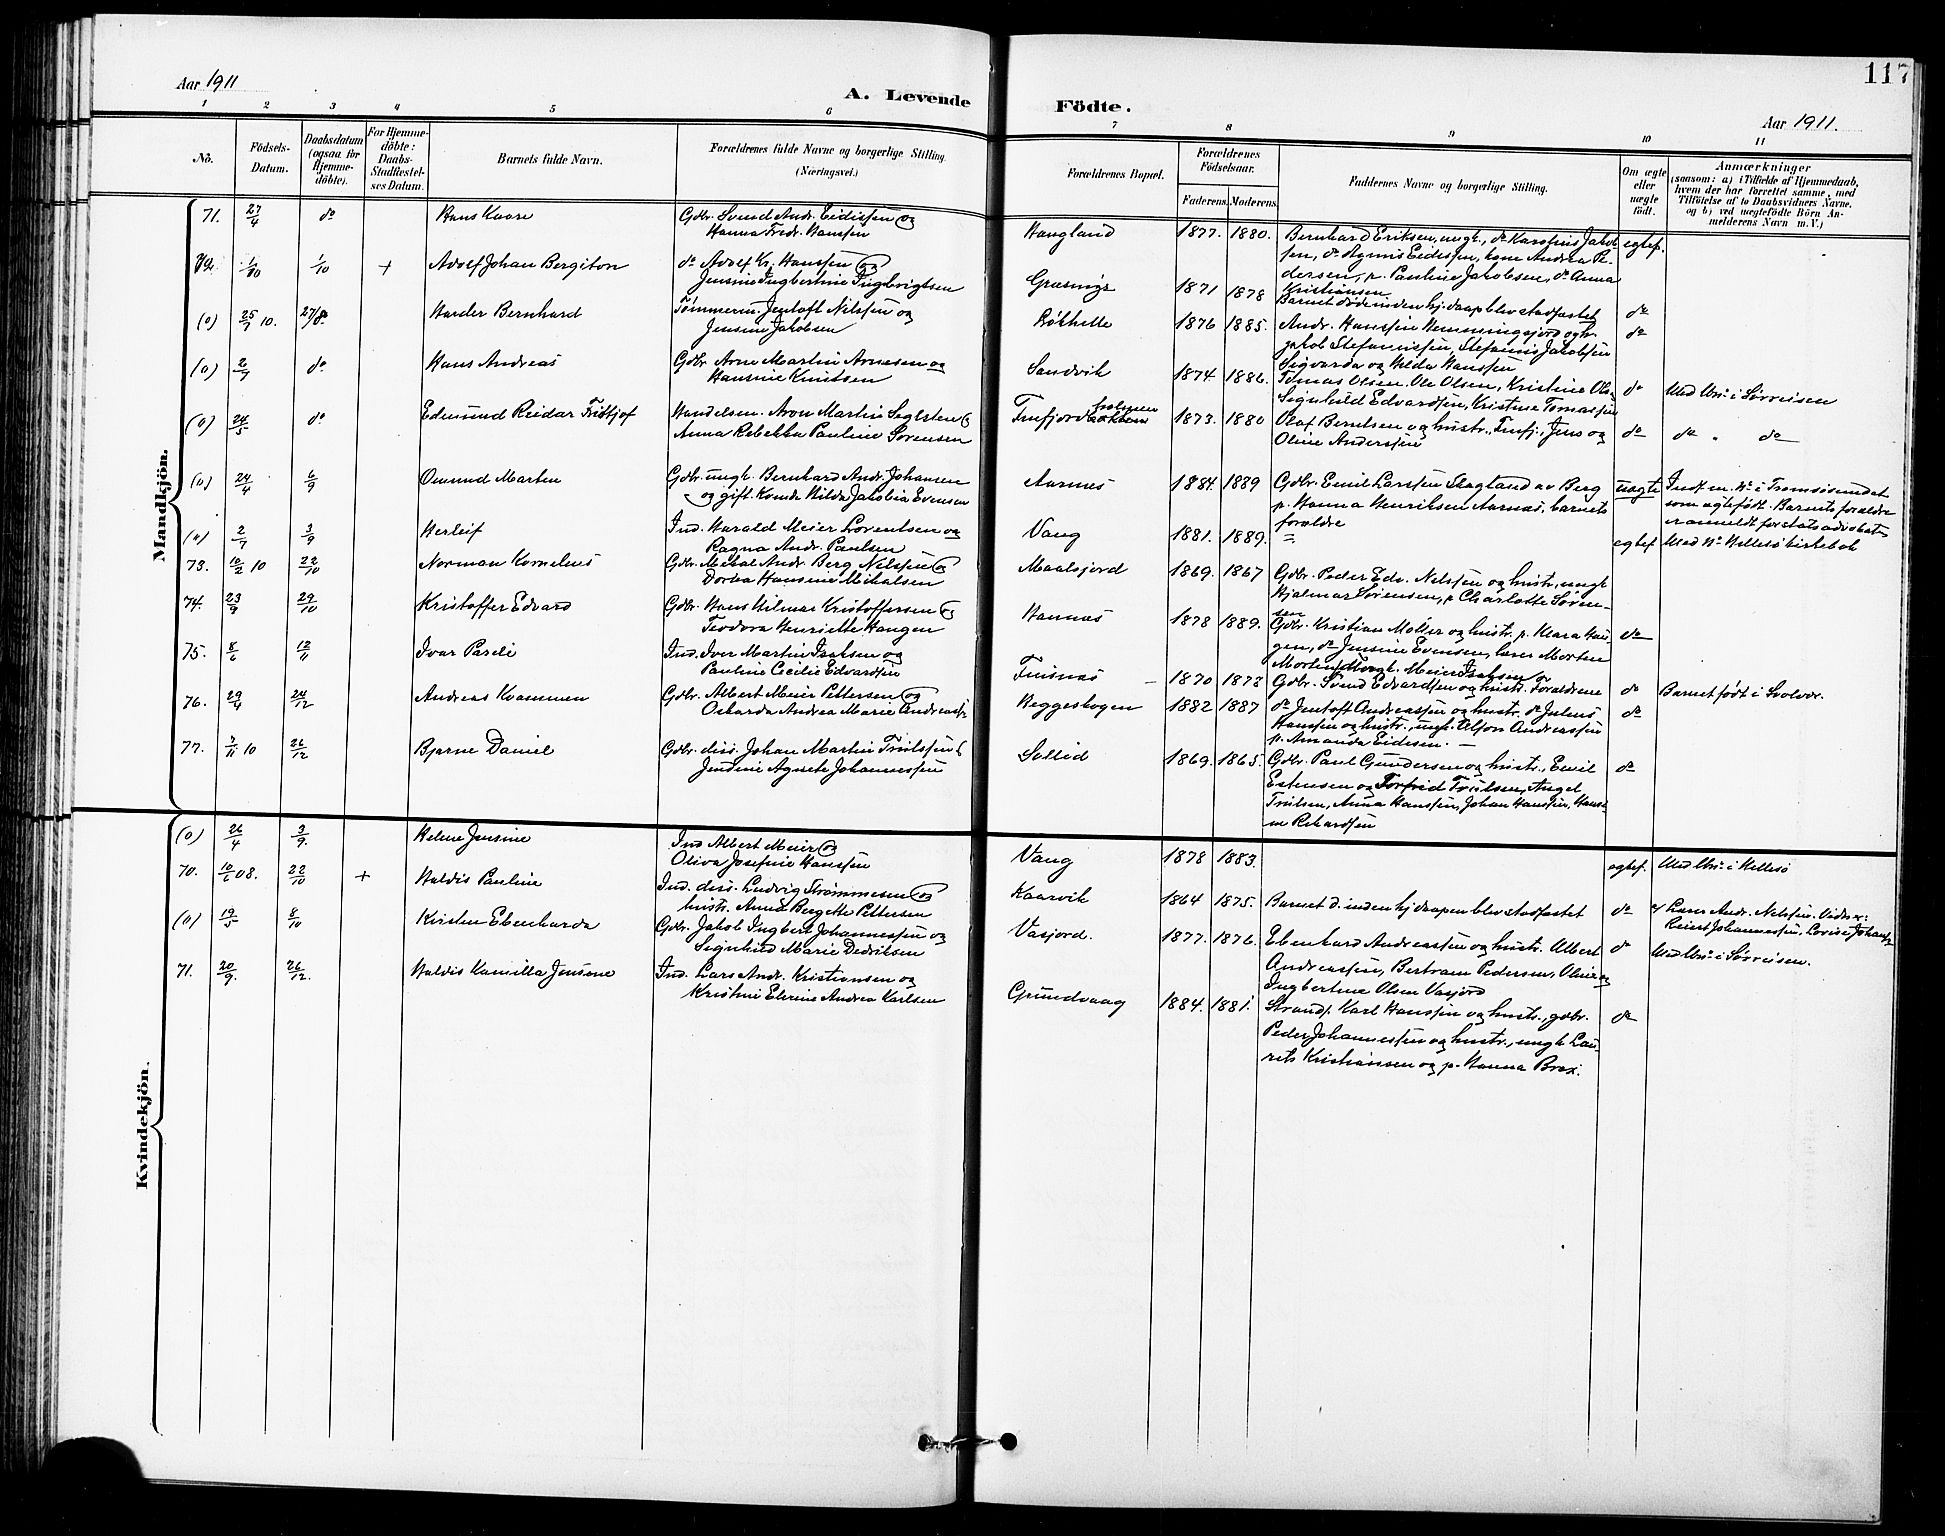 117
Aar 1911
A. Levende
Födte.
Aar 1911.
1 2 3 4 5 6 7 8 9 10 11
No.
Födsels-
Datum.
Daabsdatum
(ogsaa for
Hjemme-
döbte).
For Hjemme-
döbte:
Daabs-
Stadfæstel-
ses Datum.
Barnets fulde Navn.
Forældrenes fulde Navne og borgerlige Stilling
(Næringsvei.)
Forældrenes Bopæl.
Forældrenes
Födselsaar.
Faderens. Moderens.
Faddernes Navne og borgerlige Stilling.
Om ægte
eller
uægte
födt.
Anmærkninger
(saasom: a) i Tilfælde af Hjemmedaab,
hvem der har forrettet samme, med
Tilföielse af to Daabsvidners Navne.
og b) ved uægtefödte Börn An-
melderens Navn m. V.)
Mandkjön.
71. 27/4 do Hans Kaare
Gdbr. Svend Andr. Eidissen og
Hanna Fredr. Hanssen
Haugland 1877. 1880.
Bernhard Eriksen, ungk., do Karstinus Jakob-
sen, do Agnus Eidissen, kone Andrea Pe-
dersen, p. Pauline Jakobsen, do Anna
Kristiansen
egtef.
72. 1/10 1/10 + Adolf Johan Bergiton
do Adolf Kr. Hanssen og
Jensine Ingbertine Ingbrigtsen
Græsnigs 1871 1878
Barnet döde inden hj.daap blev stadfæstet
do
(0) 25/7 10. 27/8 Harder Bernhard
Tømmerm. Jentoft Nilssen og
Jensine Jakobsen
Røkhelle 1876 1885.
Andr. Hanssen Hemmingsjord ogbr.
Jakob Stefanussen, Stefanus Jakobsen
Sigvarda og Hilda Hanssen
do
(0) 2/7 do Hans Andreas
Gdbr. Arne Martin Arnesen og
Hansine Knutsen
Sandvik 1874 1886.
Tomas Olsen. Ole Olsen, Kristine Ol-
Segnhild Edvardsen, Kristine Tomassen
do Med No i Sørreisen
(0) 24/5 do Edmund Reidar Fridtjof
Handelsm. Aron Martin Seglsten og
Anna Rebekka Pauline Sørensen
Finfjordbotten
holmen
1873. 1880
Olaf Berntsen og hustr., Finfj., Jens og
Oline Anderssen
do do " do
(0) 24/4 6/9 Omund Marten
Gdbr. ungk. Bernhard Andr. Johansen
og gift. Kvinde Hilda Jakobia Evensen
Aarnes 1884. 1889
Gdbr. Emil Larssen Skogland av Berg
p. Hanna Henriksen Aarnes, barnets
forældre
uægte
Indf. m. No i Tromsøsundet
som ægtefødt. Barnets forældre
er anmeldt for statsadvokat
(0) 2/7 3/9 Herleif
Ind. Harald Meier Lorentsen og
Ragna Andr. Paulsen
Vang 1881. 1889. =
egtef. Med No Hillesø kirkebok
73. 10/2 10 22/10 Norman Kornelius
Gdbr. Mekal Andr. Berg Nelssen og
Dortea Hansine Mikalsen
Maalsjord 1869. 1867
Gdbr. Peder Edv. Nelssen og hustr., ungk
Hjalmar Sørensen, p Charlotte Søren-
sen
74. 23/9 29/10 Kristoffer Edvard
Gdbr. Hans Hilmar Kristoffersen og
Teodora Henriette Haugen
Hannes 1878 1889.
Gdbr. Kristian Moller og hustr. p. Klara Hau-
gen, do Jensine Evensen, lærer Morten
Mortensen, ungk. Meier Isaksen
do
75. 8/6 12/11 Ivar Pareli
Ind. Iver Martin Isaksen og
Pauline Cecilie Edvardsen
Finsnes – 1870 1873
Gdbr. Svend Edvardsen og hustr. Forældrene
do Barnet født i Svolvær.
76. 29/4 24/12 Andreas Kvammen
Gdbr. Albert Meier Pettersen og
Oskarda Andrea Marie Andreassen
Reggeskogen 1882 1887
do Jentoft Andreassen og hustr. do Julius
Hanssen og hustr., ungk. Alfon Andreassen
p. Amanda Eidesen. –
do
77. 7/11 10 26/12 Bjarne Daniel
Gdbr. diss. Johan Martin Trulssen og
Jensine Agnete Johannessen
Sollid 1869. 1865.
Gdbr. Paul Gundersen og hustr., Emil
Estensen og Torfrid Trulsen, Angel
Trulsen, Anna Hanssen, Johan Hanssen, Hansi-
ne Rikardsen
do
Kvindekjön.
(0) 26/4 3/9. Helene Jensine
Ind Albert Meier og
Oliva Josefine Hanssen
Vang 1878 1883.
egtef. Med No i Hillesø
70. 10/6 08. 22/10 + Haldis Pauline
Ind. diss. Ludvig Strømmesen og
hustr. Anna Bergette Pettersen
Kaarvik 1864 1875.
Barnet d. inden hj.daapen blev stadfæstet
do af Lærer Andr. Nelssen. Vidner:
Reiert Johannessen, Lovise Johanss.
(0) 19/5 8/10 Kirsten Ebenharda
Gdbr. Jakob Ingbert Johannessen og
Segnhild Marie Dedriksen
Vasjord. 1877. 1876.
Ebenhard Andreassen og hustr. Albert
Andreassen, Bertram Pedersen, Oline og
Ingbertine Olsen Vasjord
do Med No i Sørreisen.
71. 20/9. 26/12. Haldis Kamilla Jensone
Ind. Lars Andr. Kristiansen og
Kristine Elerine Andrea Karlsen
Grundvaag 1884. 1881.
Strands. Karl Hanssen og hustr., gdbr.
Peder Johannessen og hustr., ungk Lau-
rits Kristiansen og p. Hanna Brox.
do